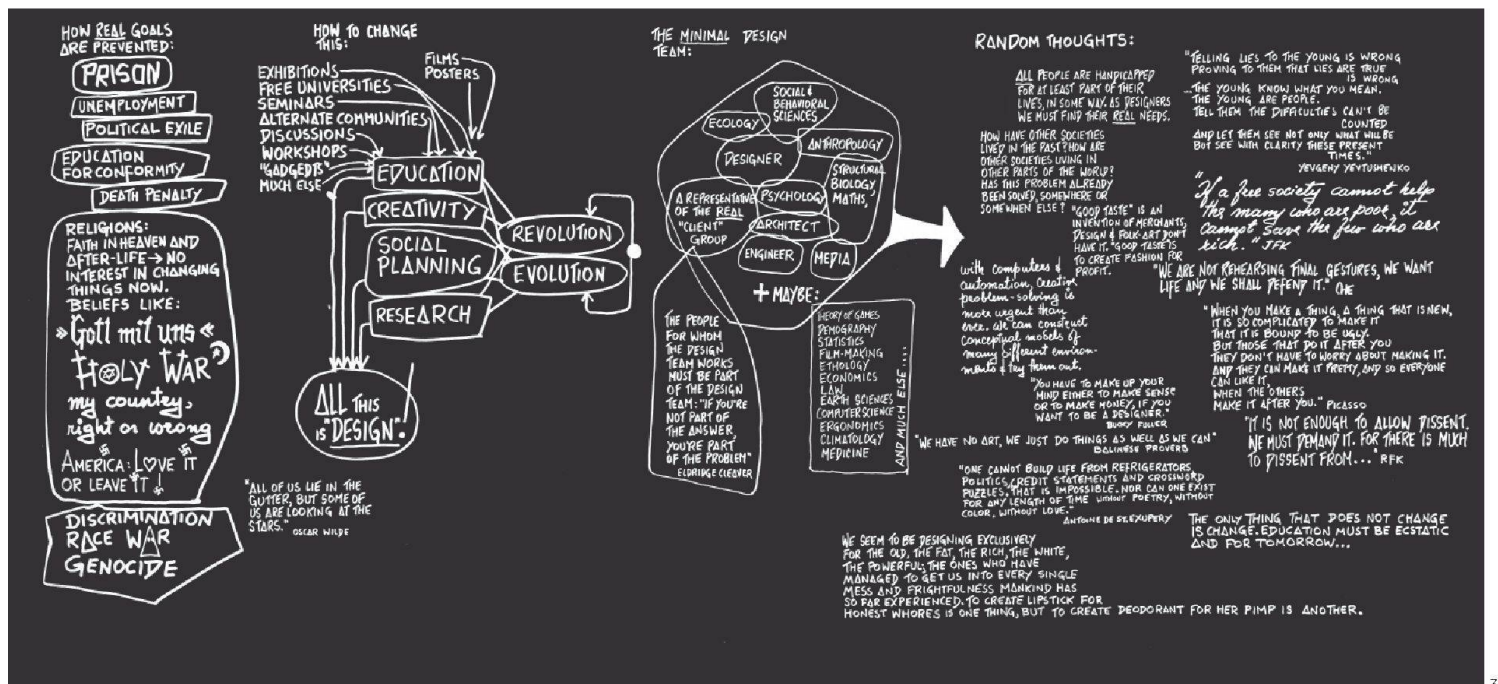 HOW REAL GOALS
ARE PREVENTED:
PRISON
UNEMPLOYMENT
POLITICAL EXILE
EDUCATION
FOR CONFORMITY
DEATH PENALTY
RELIGIONS:
FAITH IN HEAVEN AND
AFTER-LIFE → NO
INTEREST IN CHANGING
THINGS NOW.
BELIEFS LIKE:
»Gott mit uns«
HOLY WAR
my country,
right or wrong
AMERICA: LOVE IT
OR LEAVE IT!
DISCRIMINATION
RACE WAR
GENOCIDE
HOW TO CHANGE
THIS:
FILMS
POSTERS
EXHIBITIONS
FREE UNIVERSITIES
SEMINARS
ALTERNATE COMMUNITIES
DISCUSSIONS
WORKSHOPS
"GADGEDIS"
MUCH ELSE
EDUCATION
CREATIVITY
SOCIAL
PLANNING
RESEARCH
REVOLUTION
EVOLUTION
ALL THIS
IS "DESIGN"!
"ALL OF US LIE IN THE
GUTTER, BUT SOME OF
US ARE LOOKING AT THE
STARS."
OSCAR WILDE
THE MINIMAL DESIGN
TEAM:
SOCIAL &
BEHAVIORAL
SCIENCES
ECOLOGY
ANTHROPOLOGY
DESIGNER
STRUCTURAL
BIOLOGY,
MATHS,
PSYCHOLOGY
A REPRESENTATIVE
OF THE REAL
"CLIENT"
GROUP
ARCHITECT
ENGINEER
MEDIA
+ MAYBE:
THE PEOPLE
FOR WHOM
THE DESIGN
TEAM WORKS
MUST BE PART
OF THE DESIGN
TEAM: "IF YOU'RE
NOT PART OF
THE ANSWER,
YOU'RE PART
OF THE PROBLEM"
ELDRIDGE CLEAVER
THEORY OF GAMES
DEMOGRAPHY
STATISTICS
FILM-MAKING
ETHOLOGY
ECONOMICS
LAW
EARTH SCIENCES
COMPUTER SCIENCE
ERGONOMICS
CLIMATOLOGY
MEDICINE
AND MUCH ELSE....
RANDOM THOUGHTS:
ALL PEOPLE ARE HANDICAPPED
FOR AT LEAST PART OF THEIR
LIVES, IN SOME WAY. AS DESIGNERS
WE MUST FIND THEIR REAL NEEDS.
HOW HAVE OTHER SOCIETIES
LIVED IN THE PAST? HOW ARE
OTHER SOCIETIES LIVING IN
OTHER PARTS OF THE WORLD?
HAS THIS PROBLEM ALREADY
BEEN SOLVED, SOMEWHERE OR
SOMEWHEN ELSE?
"GOOD TASTE" IS AN
INVENTION OF MERCHANTS,
DESIGN & FOLK-ART DON'T
HAVE IT. "GOOD TASTE" IS
TO CREATE FASHION FOR
PROFIT.
with computers &
automation, creative
problem-solving is
more urgent than
ever. we can construct
conceptual models of
many different environ-
ments & try them out.
"YOU HAVE TO MAKE UP YOUR
MIND EITHER TO MAKE SENSE
OR TO MAKE MONEY, IF YOU
WANT TO BE A DESIGNER."
BUCKY FULLER
"WE HAVE NO ART, WE JUST DO THINGS AS WELL AS WE CAN"
BALINESE PROVERB
"ONE CANNOT BUILD LIFE FROM REFRIGERATORS,
POLITICS, CREDIT STATEMENTS AND CROSSWORD
PUZZLES. THAT IS IMPOSSIBLE. NOR CAN ONE EXIST
FOR ANY LENGTH OF TIME WITHOUT POETRY, WITHOUT
COLOR, WITHOUT LOVE."
ANTOINE DE ST. EXUPERY
WE SEEM TO BE DESIGNING EXCLUSIVELY
FOR THE OLD, THE FAT, THE RICH, THE WHITE,
THE POWERFUL; THE ONES WHO HAVE
MANAGED TO GET US INTO EVERY SINGLE
MESS AND FRIGHTFULNESS MANKIND HAS
SO FAR EXPERIENCED. TO CREATE LIPSTICK FOR
HONEST WHORES IS ONE THING, BUT TO CREATE DEODORANT FOR HER PIMP IS ANOTHER.
"TELLING LIES TO THE YOUNG IS WRONG
PROVING TO THEM THAT LIES ARE TRUE
IS WRONG
...THE YOUNG KNOW WHAT YOU MEAN.
THE YOUNG ARE PEOPLE.
TELL THEM THE DIFFICULTIES CAN'T BE
COUNTED
AND LET THEM SEE NOT ONLY WHAT WILL BE
BUT SEE WITH CLARITY THESE PRESENT
TIMES."
YEVGENY YEVTUSHENKO
"If a free society cannot help
the many who are poor, it
cannot save the few who are
rich." JFK
"WE ARE NOT REHEARSING FINAL GESTURES, WE WANT
LIFE AND WE SHALL DEFEND IT." CHE
"WHEN YOU MAKE A THING, A THING THAT IS NEW,
IT IS SO COMPLICATED TO MAKE IT
THAT IT IS BOUND TO BE UGLY.
BUT THOSE THAT DO IT AFTER YOU
THEY DON'T HAVE TO WORRY ABOUT MAKING IT.
AND THEY CAN MAKE IT PRETTY, AND SO EVERYONE
CAN LIKE IT,
WHEN THE OTHERS
MAKE IT AFTER YOU." PICASSO
"IT IS NOT ENOUGH TO ALLOW DISSENT.
WE MUST DEMAND IT. FOR THERE IS MUCH
TO DISSENT FROM..." RFK
THE ONLY THING THAT DOES NOT CHANGE
IS CHANGE. EDUCATION MUST BE ECSTATIC
AND FOR TOMORROW...
3